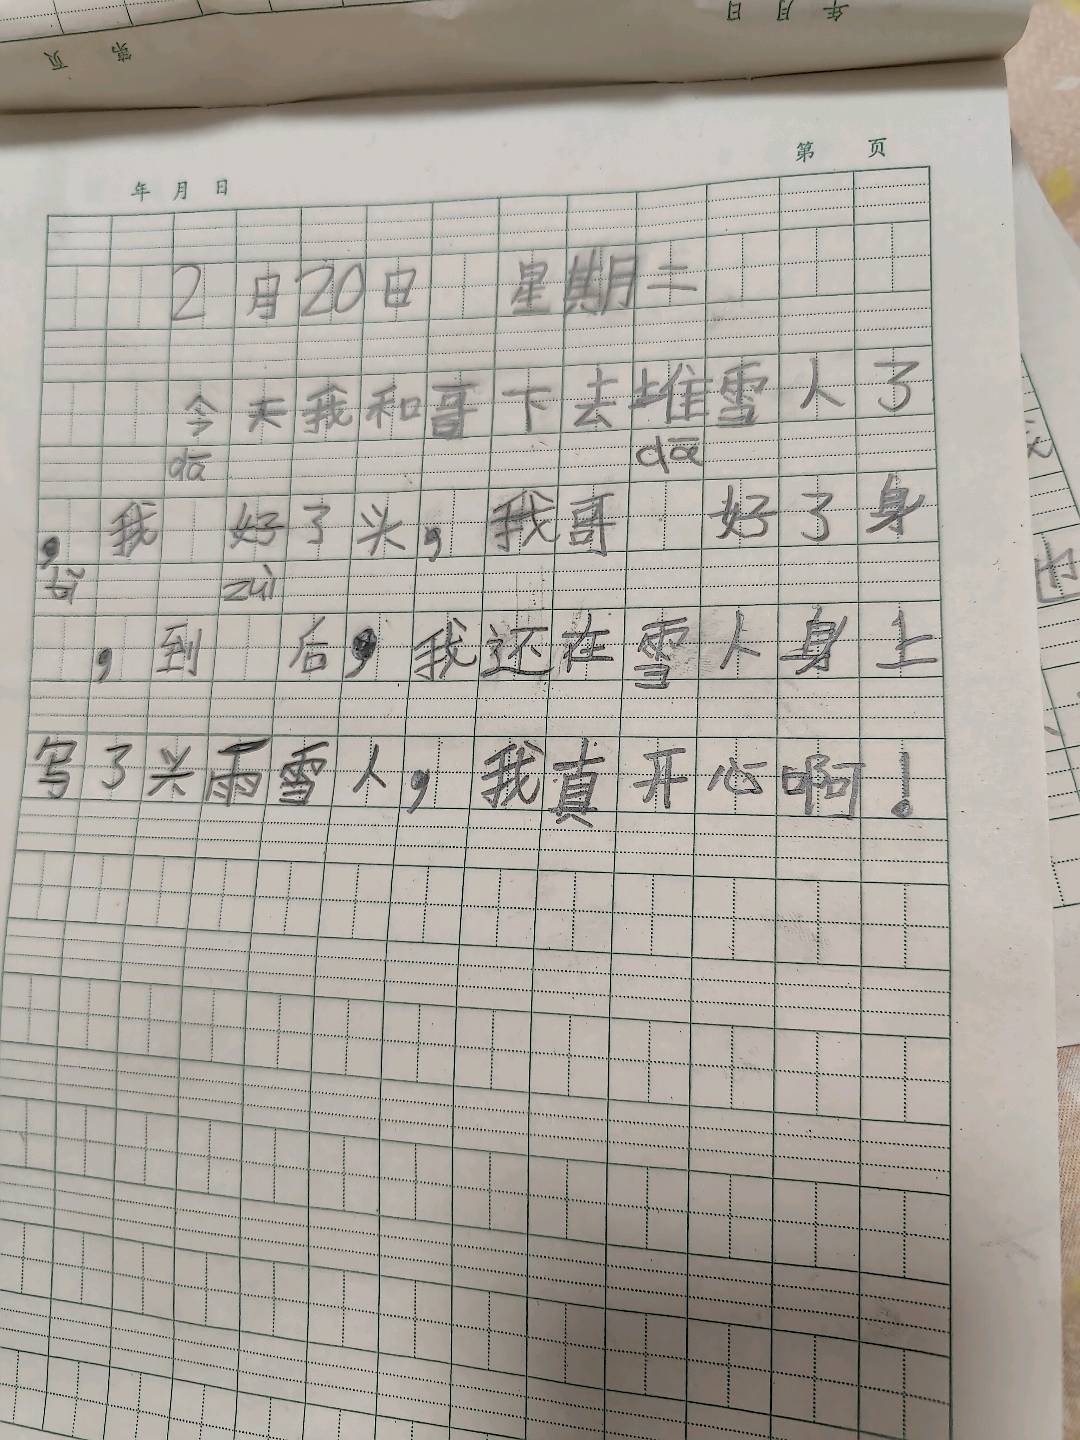 第 页
年 月 日
第 页
年 月 日
2月20日 星期二
今天我和哥下去堆雪人了
dā dā
,我 好了头,我哥 好了身
tǐ zuì
,到 后,我还在雪人身上
写了兴雨雪人,我真开心啊!